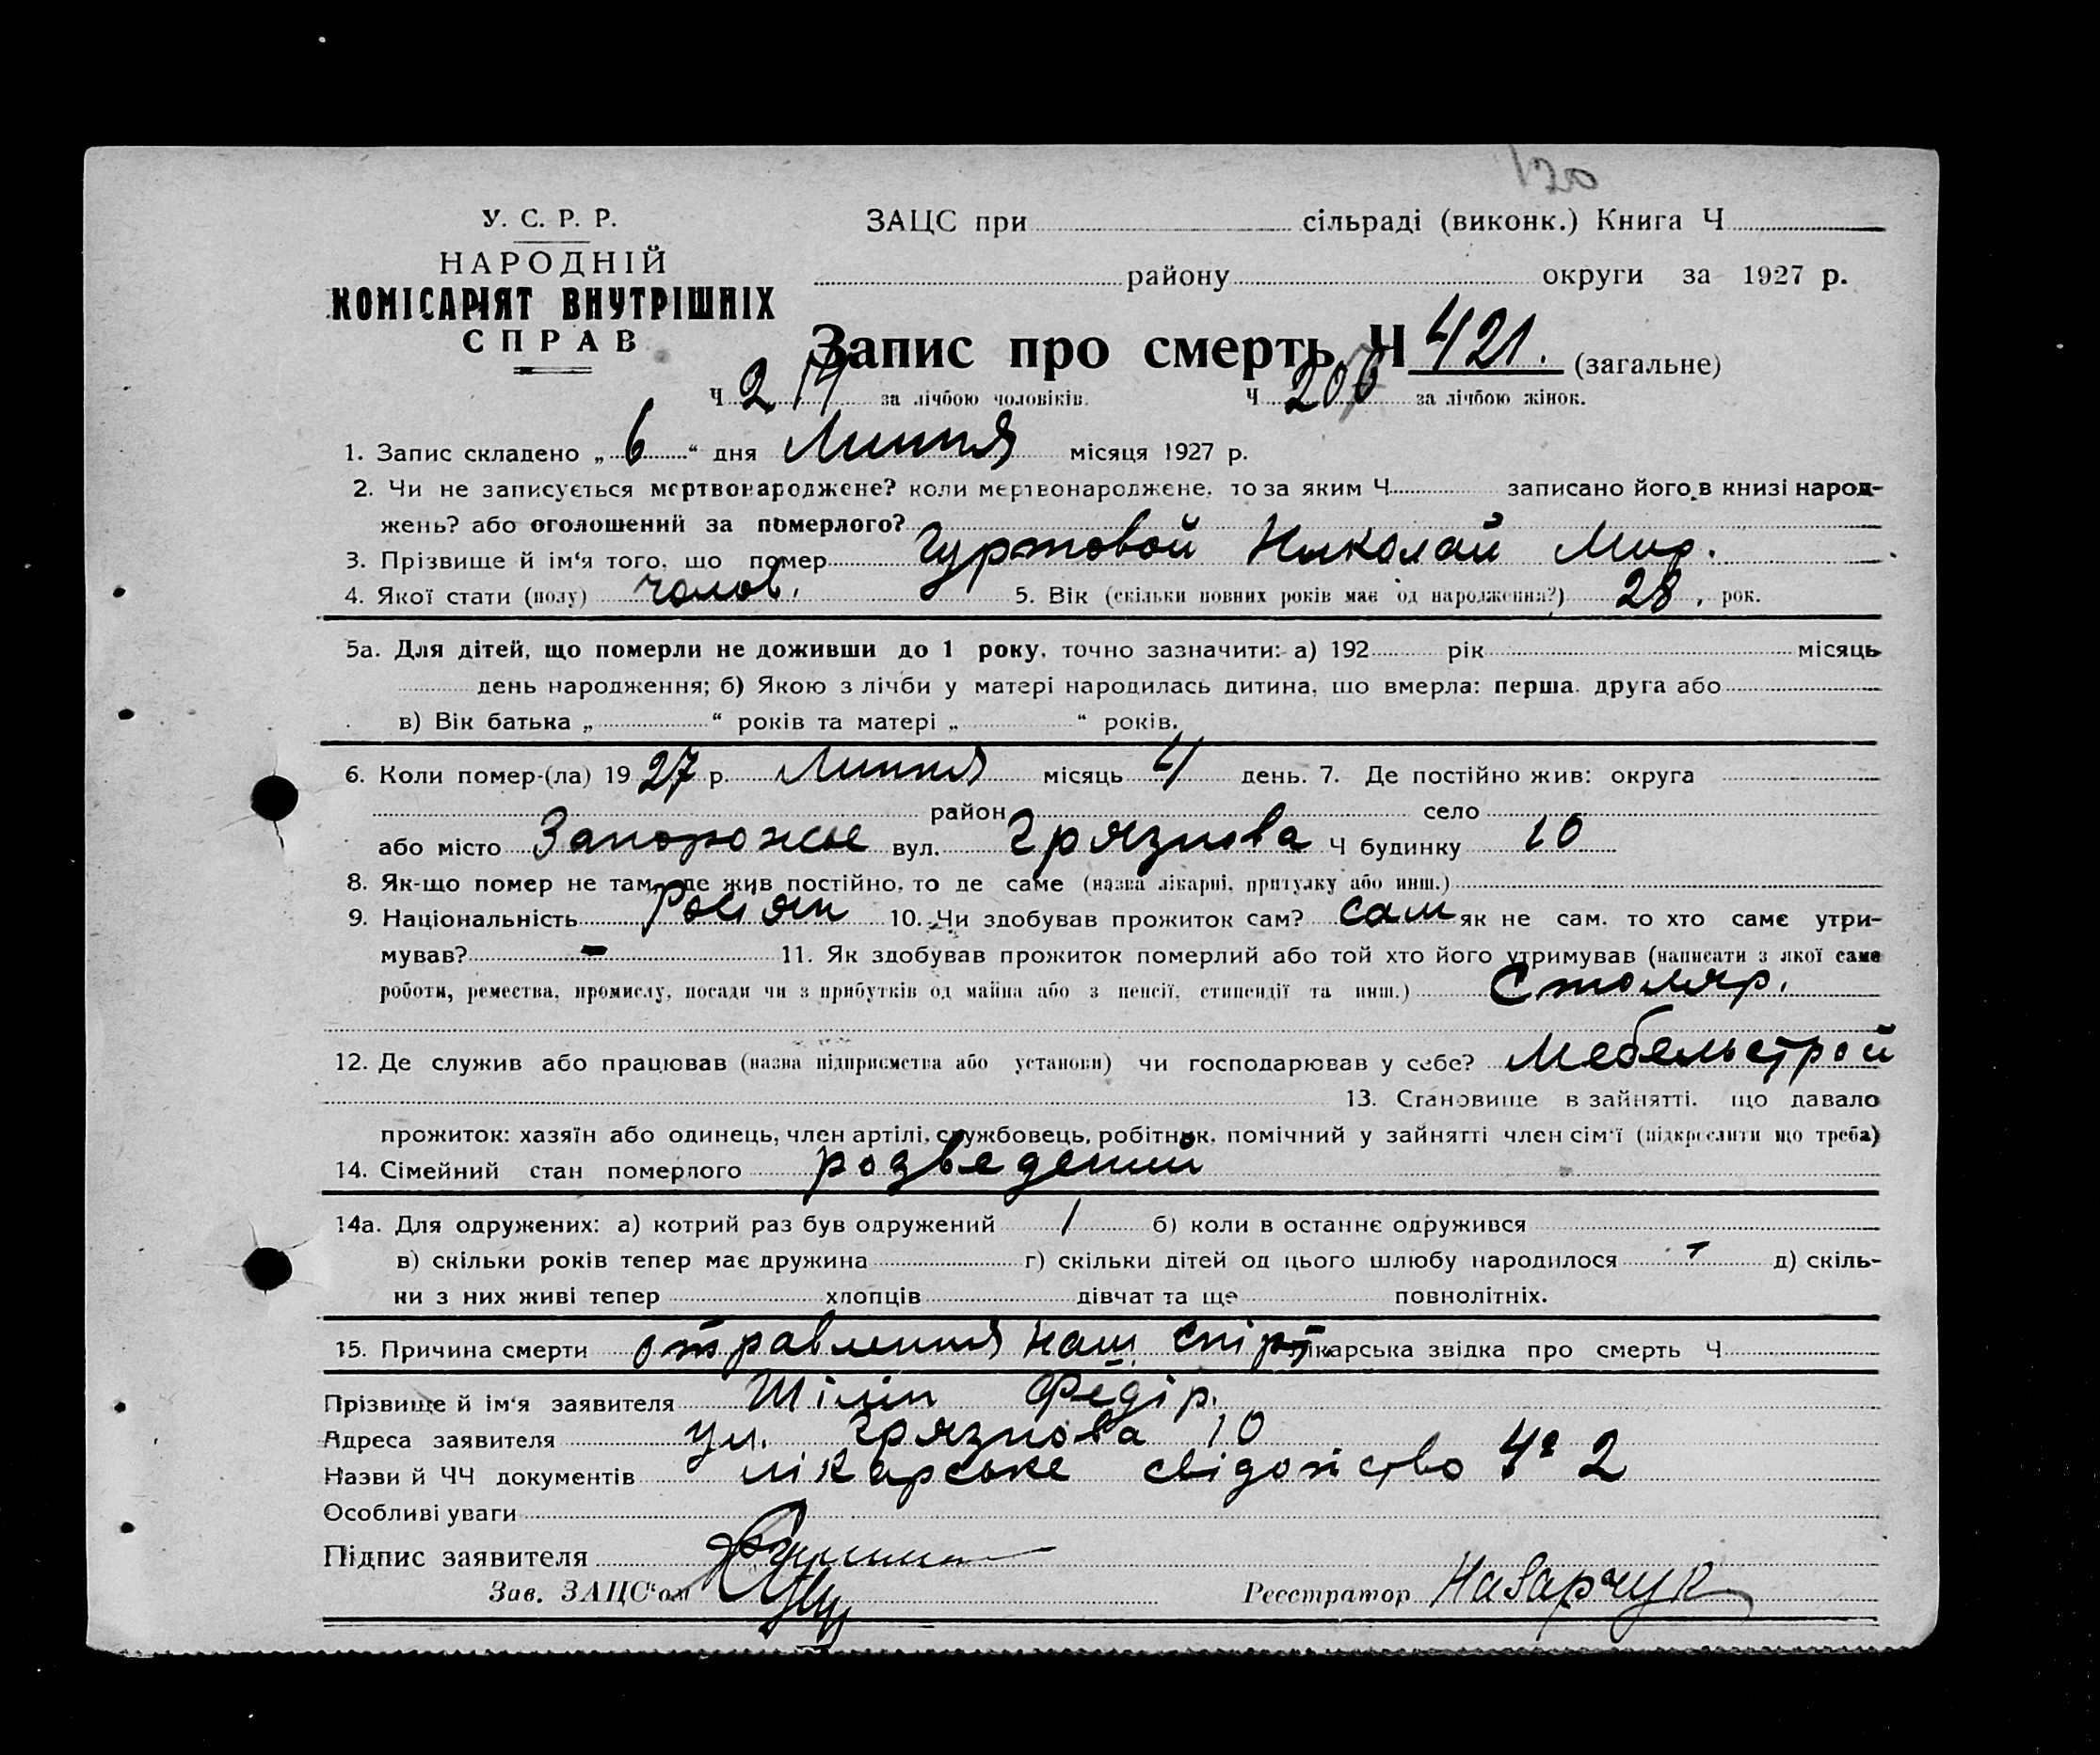 120
У. С. Р. Р.
НАРОДНІЙ
КОМІСАРІЯТ ВНУТРІШНІХ
СПРАВ
ЗАЦС при сільраді (виконк.) Книга Ч
району округи за 1927 р.
Запис про смерть Ч 421. (загальне)
Ч 214 за лічбою чоловіків. Ч за лічбою жінок.
1. Запис складено „ 6 “ дня Липня місяця 1927 р.
2. Чи не записується мертвонароджене? коли мертвонароджене, то за яким Ч записано його в книзі народ-
жень? або оголошений за померлого?
3. Прізвище й ім‘я того, що помер Гуртовой Николай
4. Якої стати (полу) чолов. 5. Вік (скільки повних років має од народження?) 28, рок.
5а. Для дітей, що померли не доживши до 1 року, точно зазначити: а) 192 рік місяць
день народження; б) Якою з лічби у матері народилась дитина, що вмерла: перша, друга або
в) Вік батька „ “ років та матері „ “ років.
6. Коли помер-(ла) 1927 р. Липня місяць 4 день. 7. Де постійно жив: округа
район село
або місто Запорожье вул. Грязнова Ч будинку 10
8. Як-що помер не там, де жив постійно, то де саме (назва лікарні, притулку або инш.)
9. Національність Росіян 10. Чи здобував прожиток сам? сам як не сам, то хто саме утри-
мував? - 11. Як здобував прожиток померлий або той хто його утримував (написати з якої саме
роботи, ремества, промислу, посади чи з прибутків од майна або з пенсії, стипендії та инш.) Столяр.
12. Де служив або працював (назва підприємства або установи) чи господарював у себе? Мебельстрой
13. Становище в зайнятті, що давало
прожиток: хазяїн або одинець, член артілі, службовець, робітник, помічний у зайнятті член сім‘ї (підкреслити що треба)
14. Сімейний стан померлого розведений
14а. Для одружених: а) котрий раз був одружений 1 б) коли в останнє одружився
в) скільки років тепер має дружина г) скільки дітей од цього шлюбу народилося д) скіль-
ки з них живі тепер хлопців дівчат та ще повнолітніх.
15. Причина смерти отравлення наш. спірт. лікарська звідка про смерть Ч
Прізвище й ім‘я заявителя Шілін Федір.
Адреса заявителя ул. Грязнова 10
Назви й ЧЧ документів лікарське свідоцтво 2
Особливі уваги
Підпис заявителя
Зав. ЗАЦС‘ом Реєстратор Назарчук